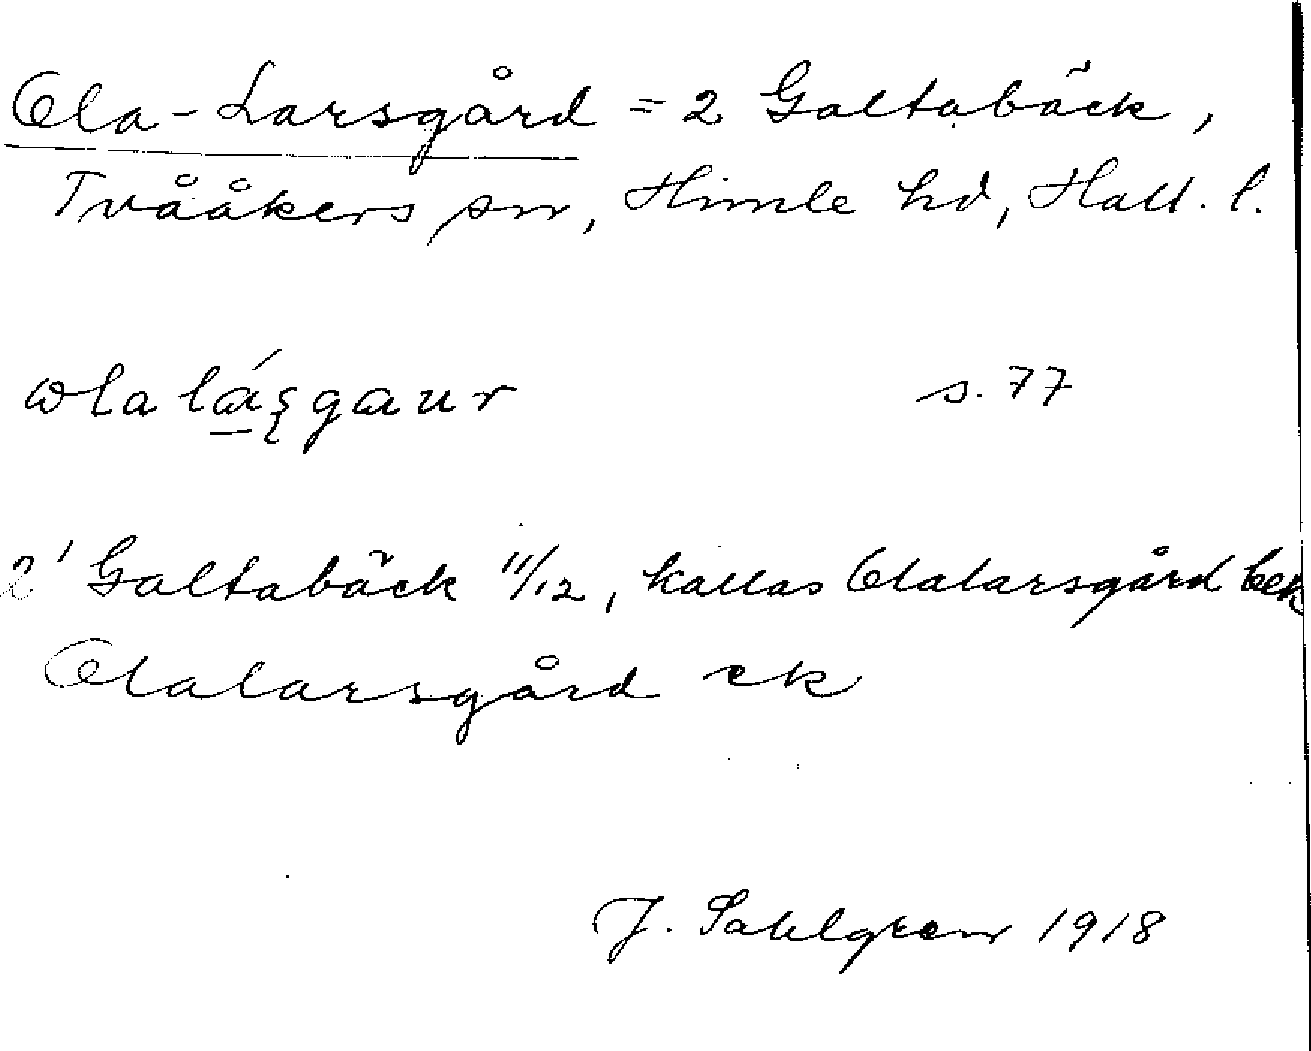 Ola-Larsgård = 2 Galtabäck,
Tvååkers sn, Himle hd, Hall. l.
ωla lá̱ʂgaur s. 77
2¹ Galtabäck 11/12, kallas Olalarsgård
Olalarsgård ek
J. Sahlgren 1918